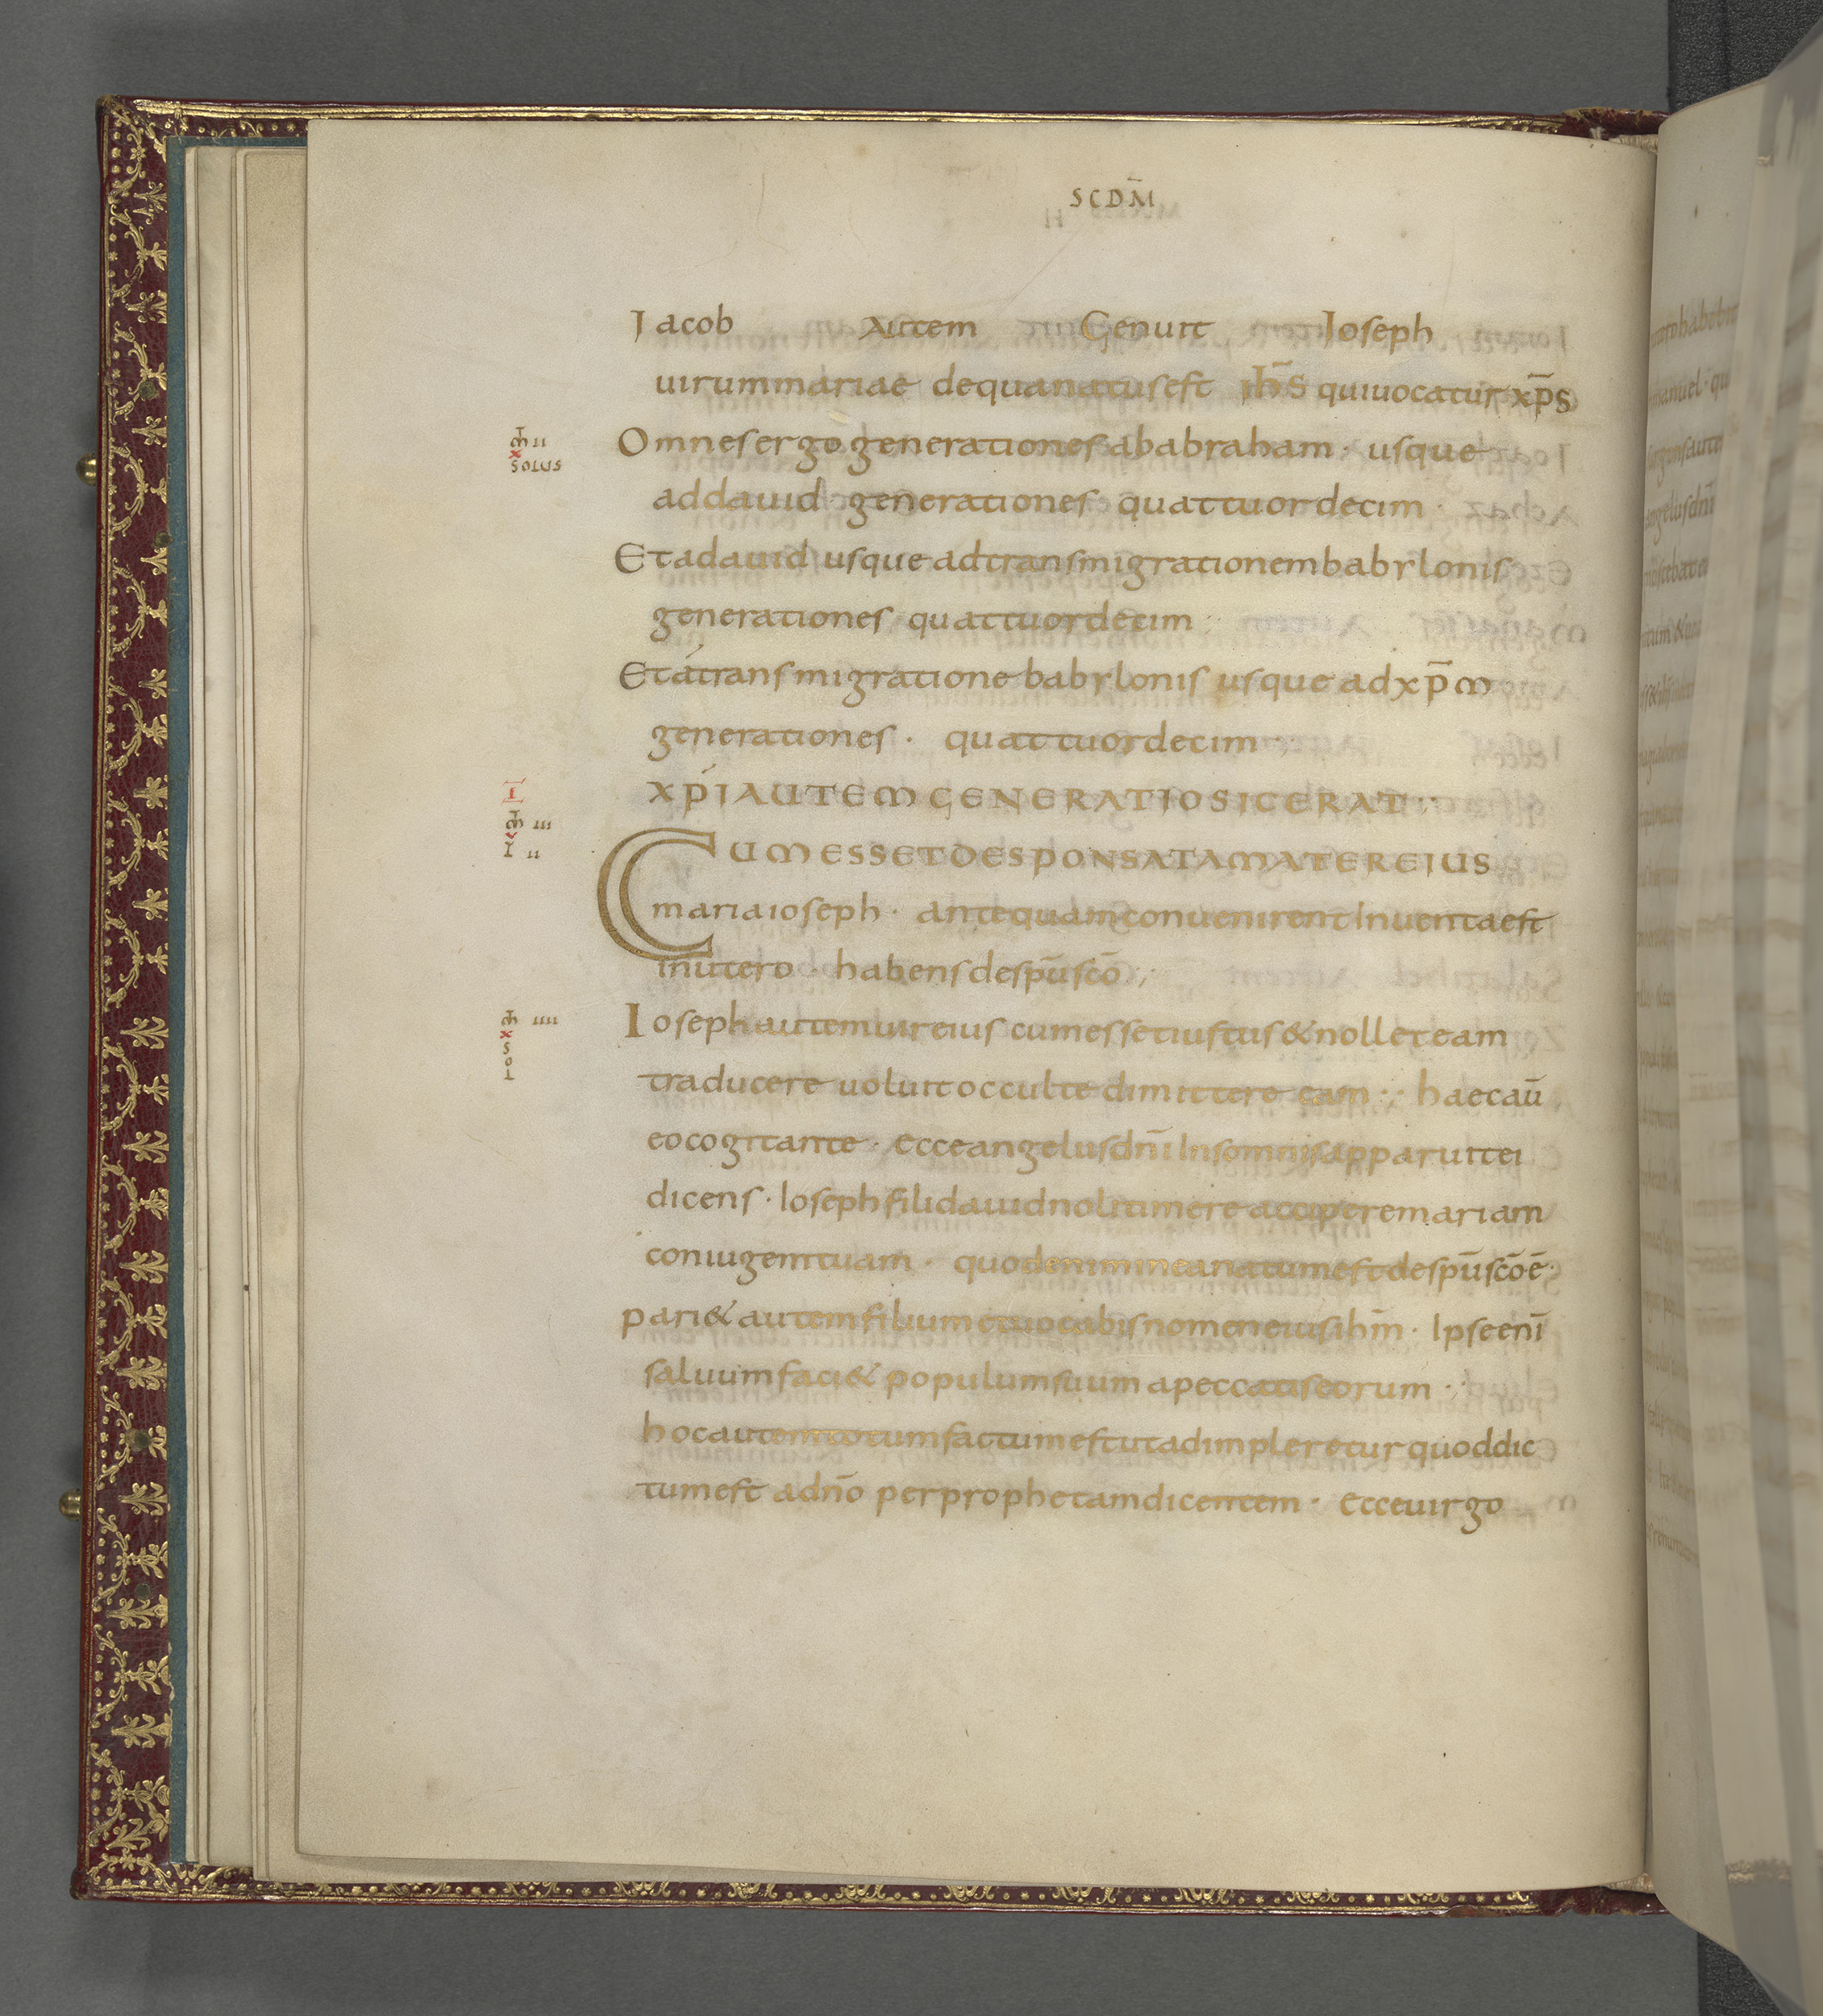 SCDM̄
Iacob Autem Genuit Ioseph
uirummariae dequanatusest ih̄s quiuocatur xp̄s
m̄ ii
x
SOLUS
Omnesergo generationesababraham · usque
addauid generationes quattuordecim ·
Etadauid usque adtransmigrationembabylonis
generationes quattuordecim
Etátransmigratione babylonis usque adxp̄m
generationes · quattuordecim ·
I
XP̄IAUTEMGENERATIOSICERAT
m̄ iii
CUMESSETDESPONSATAMATEREIUS
ii
mariaioseph · antequamconuenirentInuentaest
inutero habensdesp̄usc̄o
m̄ iiii
x
SOL
Iosephautemuireius cumessetiustus&nolleteam
traducere uoluitocculte dimittere eam · haecaū
eocogitante · Ecceangelusdn̄iInsomnisapparuitei
dicens · Iosephfilidauidnolitimere acciperemariam
coniugemtuam · quodenimineanatumestdesp̄usc̄oē ·
pari&autemfiliumetuocabisnomeneiusihm̄ · Ipseenī
saluumfaci&populumsuum apeccatiseorum ·
hocautemtotumfactumestutadimpleretur quoddic
tumest adn̄o perprophetamdicentem · Ecceuirgo